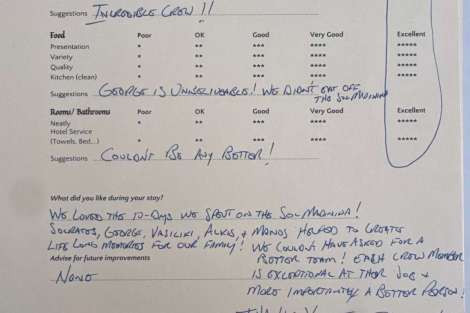 Suggestions INCREDIBLE CREW!!
Food Poor OK Good Very Good Excellent
Presentation * ** *** **** *****
Variety * ** *** **** *****
Quality * ** *** **** *****
Kitchen (clean) * ** *** **** *****
Suggestions GEORGE IS UNBELIEVEABLE! WE DIDN'T EAT OFF
THE SOL MADININA
Rooms/ Bathrooms Poor OK Good Very Good Excellent
Neatly * ** *** **** *****
Hotel Service
(Towels, Bed...) * ** *** **** *****
Suggestions COULDN'T BE ANY BETTER!
What did you like during your stay?
WE LOVED THE 10-DAYS WE SPENT ON THE SOL MADININA!
SOCRATES, GEORGE, VASILIKI, ALKIS, + MANOS HELPED TO CREATE
LIFE LONG MEMORIES FOR OUR FAMILY! WE COULDN'T HAVE ASKED FOR A
Advise for future improvements BETTER TEAM! EACH CREW MEMBER
None IS EXCEPTIONAL AT THEIR JOB +
MORE IMPORTANTLY A BETTER PERSON!